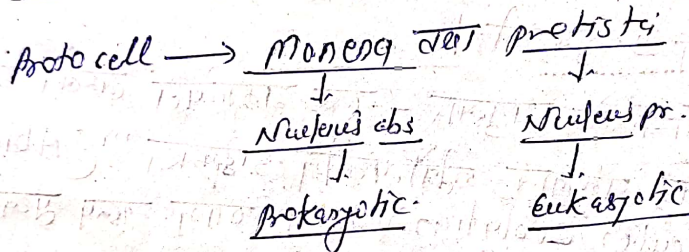 Protocell → Monera तथा Protista
↓ ↓
Nucleus abs Nucleus pr.
↓ ↓
Prokaryotic. Eukaryotic